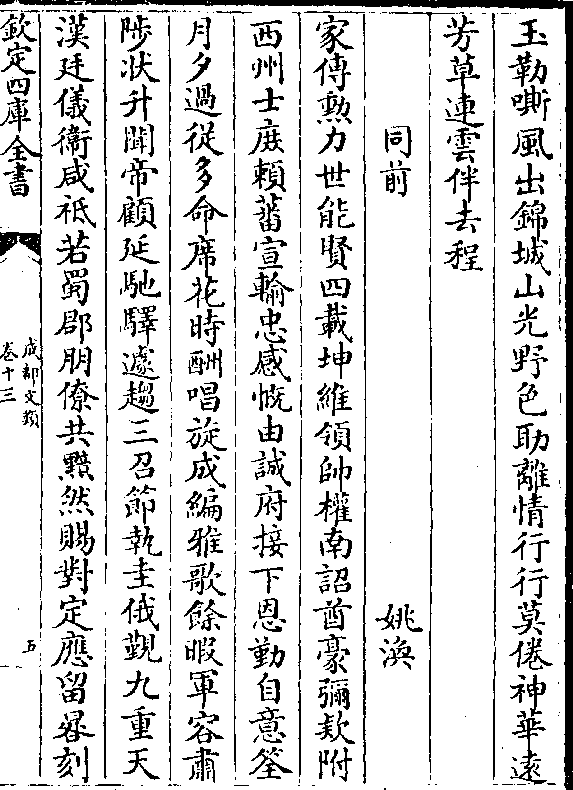 玉勒嘶風出錦城山光野色助離情行行莫倦神華遠
芳草連雲伴去程
同前　姚渙
家傳勲力世能賢四載坤維領帥權南詔酋豪彌欵附
西州士庶頼蕃宣輸忠感慨由誠府接下恩勤自意筌
月夕過從多命席花時酬唱旋成編雅歌餘暇軍容肅
陟狀升聞帝顧延馳驛遽趨三召節執圭俄覲九重天
漢廷儀衛咸祗若蜀郡朋僚共黯然賜對定應留晷刻
欽定四庫全書
成都文類
卷十三
五